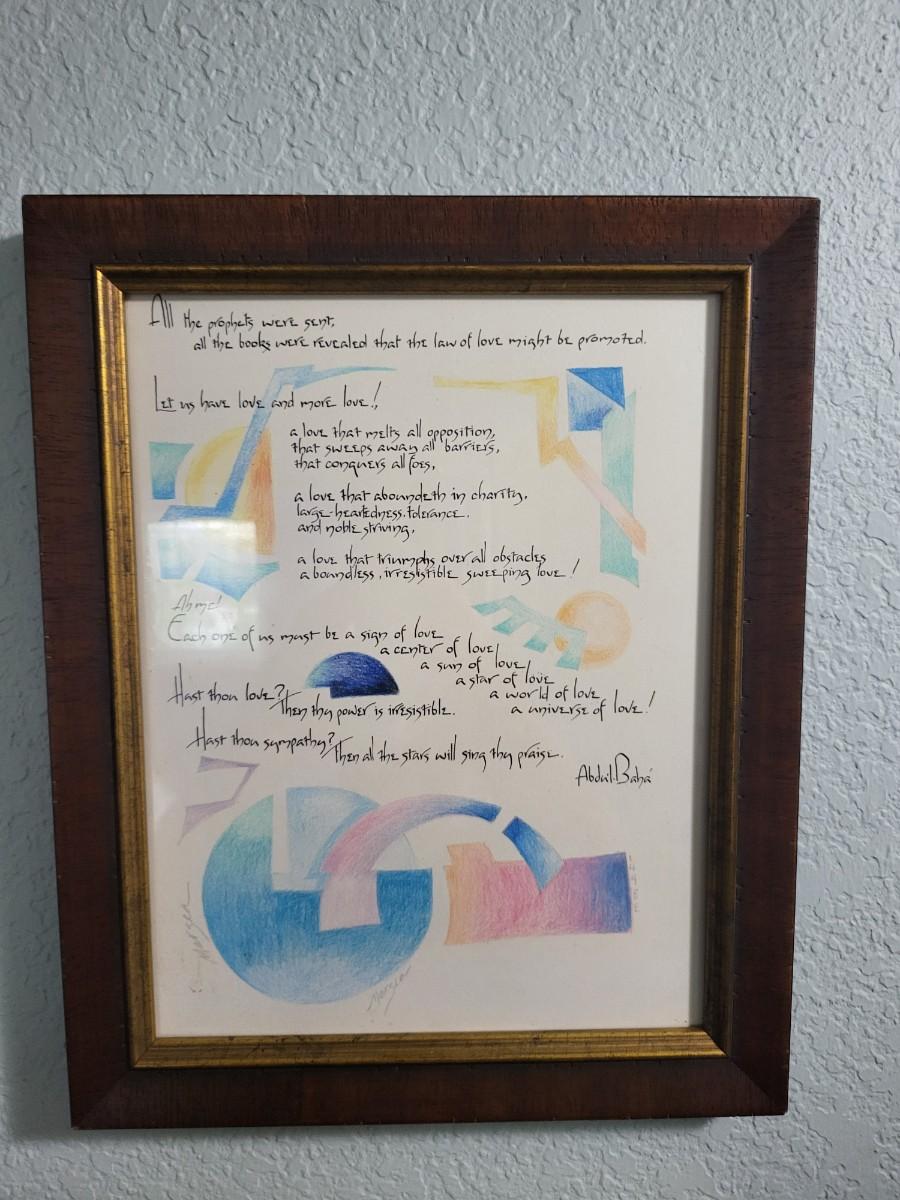 All the prophets were sent,
all the books were revealed that the law of love might be promoted.
Let us have love and more love!,
a love that melts all opposition,
that sweeps away all barriers,
that conquers all foes,
a love that aboundeth in charity,
large-heartedness, tolerance.
and noble striving,
a love that triumphs over all obstacles
a boundless, irresistible sweeping love!
Each one of us must be a sign of love
a center of love
a sun of love
a star of love
a world of love
a universe of love!
Hast thou love?
Then thy power is irresistible.
Hast thou sympathy?
Then all the stars will sing thy praise.
Abdu'l-Bahá